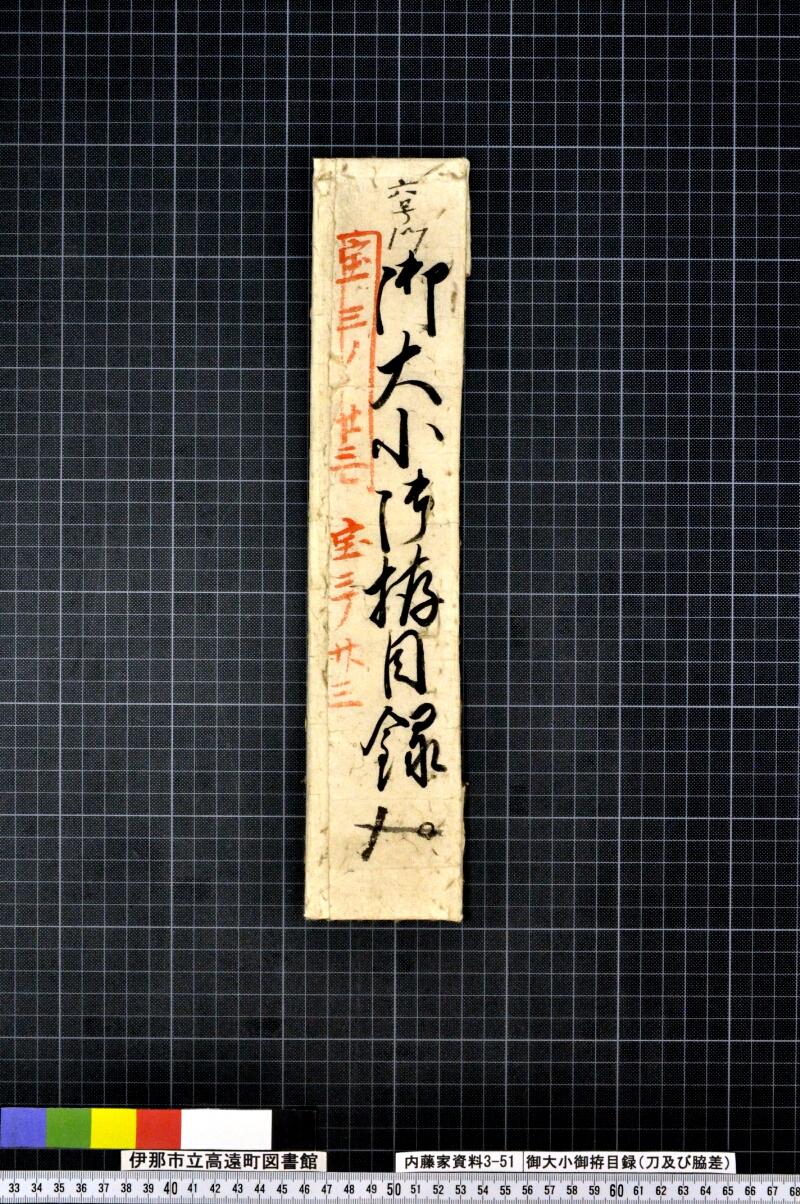 六号
御大小御拵目録
宝三ノ廿三
宝三ノ廿三
伊那市立高遠町図書館
内藤家資料3-51 御大小御拵目録(刀及び脇差)
33 34 35 36 37 38 39 40 41 42 43 44 45 46 47 48 49 50 51 52 53 54 55 56 57 58 59 60 61 62 63 64 65 66 67 68